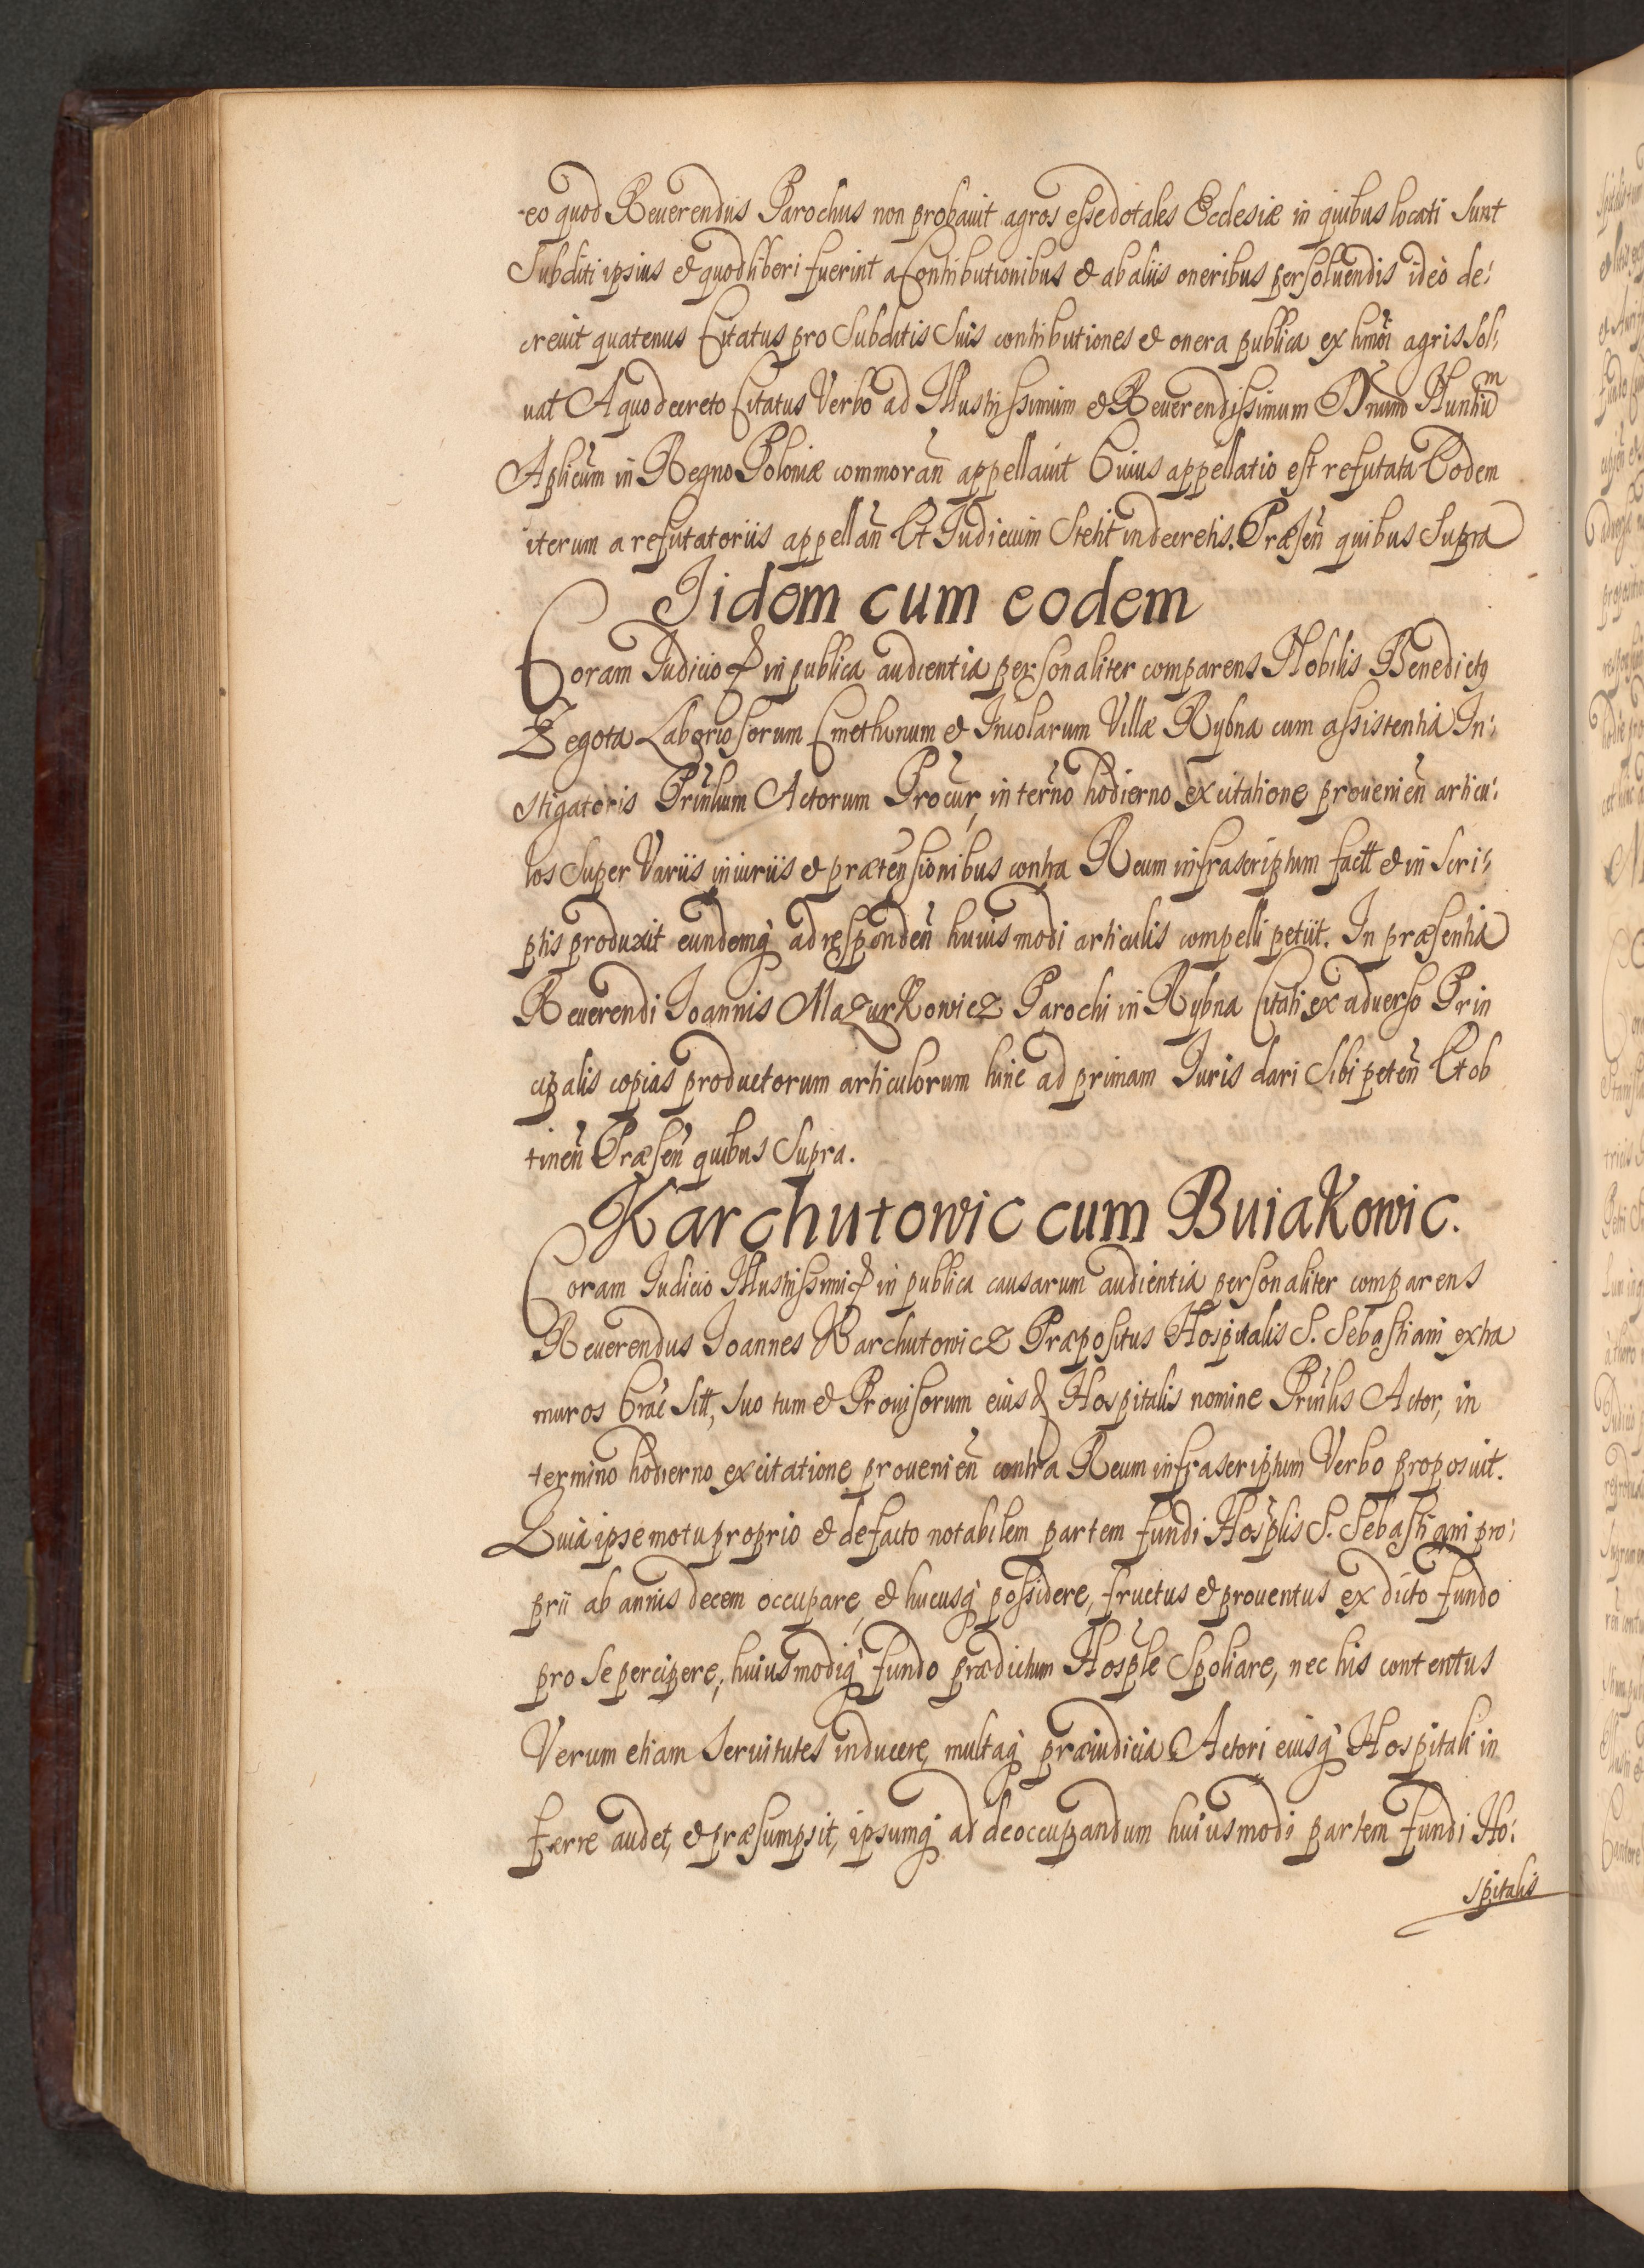 eo quod Reuerendus Parochus non probauit agros esse dotales Ecclesiæ in quibus locati sunt
Subditi ipsius et quod liberi fuerint a Contributionibus et ab aliis oneribus persoluendis ideò de:
creuit quatenus Citatus pro Subditis Suis contributiones et onera publica ex hm̃oi agris sol:
uat A quo decreto Citatus Verbo ad Illustrissimum et Reuerendissimum Dnum Nuntiũm
Aplicum in Regno Poloniæ commorañ appellauit Cuius appellatio est refutata Eodem
iterum a refutatoriis appellañ Et Iudicium Stetit in decretis. Præseñ quibus Supra
Iidem cum eodem
Coram Iudicio &c in publica audientia personaliter comparens Nobilis Benedictꝰ
Zegota Laboriosorum Cmethonum et Incolarum Villæ Rybna cum assistentia In:
stigatoris Prinłium Actorum Procur, in termo hodierno ex citatione prouenieñ articu:
los Super Variis iniuriis et prætensionibus contra Reum infrascriptum factt et in scri:
ptis produxit eundemq̃ ad respondeñ huiusmodi articulis compelli petiit. In præsentia
Reuerendi Ioannis Mazurkowicz Parochi in Rybna Citati ex aduerso Prin
cipalis copias productorum articulorum hinc ad primam Iuris dari Sibi peteñ Et ob
tineñ Præseñ quibus Supra.
Karchutowic cum Buiakowic.
Coram Iudicio Illustrissimi &c in publica causarum audientia personaliter comparens
Reuerendus Ioannes Karchutowicz Præpositus Hospitalis S. Sebastiani extra
muros Crac̃ Sitt, suo tum et Prouisorum eiusd Hospitalis nomine Prinłis Actor, in
termino hodierno ex citatione prouenieñ contra Reum infrascriptum Verbo proposuit.
Quia ipse motu proprio et de facto notabilem partem fundi Hosplis S. Sebastiani pro:
prii ab annis decem occupare, et hucusq̃ possidere, fructus et prouentus ex dicto fundo
pro se percipere, huiusmodiq̃ fundo prædictum Hosple Spoliare, nec his contentus
Verum etiam Seruitutes inducere, multaq̃ præiudicia Actori eiusq̃ Hospitali in
ferre audet, et præsumpsit, ipsumq̃ ad deoccupandum huiusmodi partem fundi Ho:
spitalis